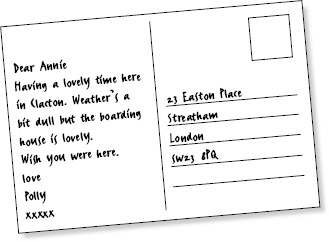 Dear Annie
Having a lovely time here
in Clacton. Weather's a
bit dull but the boarding
house is lovely.
Wish you were here.
love
Polly
xxxxx
23 Easton Place
Streatham
London
SW23 8PQ